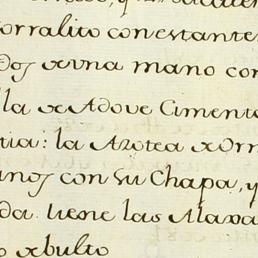 orralito con estante
dos de una mano con
lla de Adove Cimento
tia: la Azotea de Or
anos con su Chapa, y
da. tiene las Alaxa
o de bulto